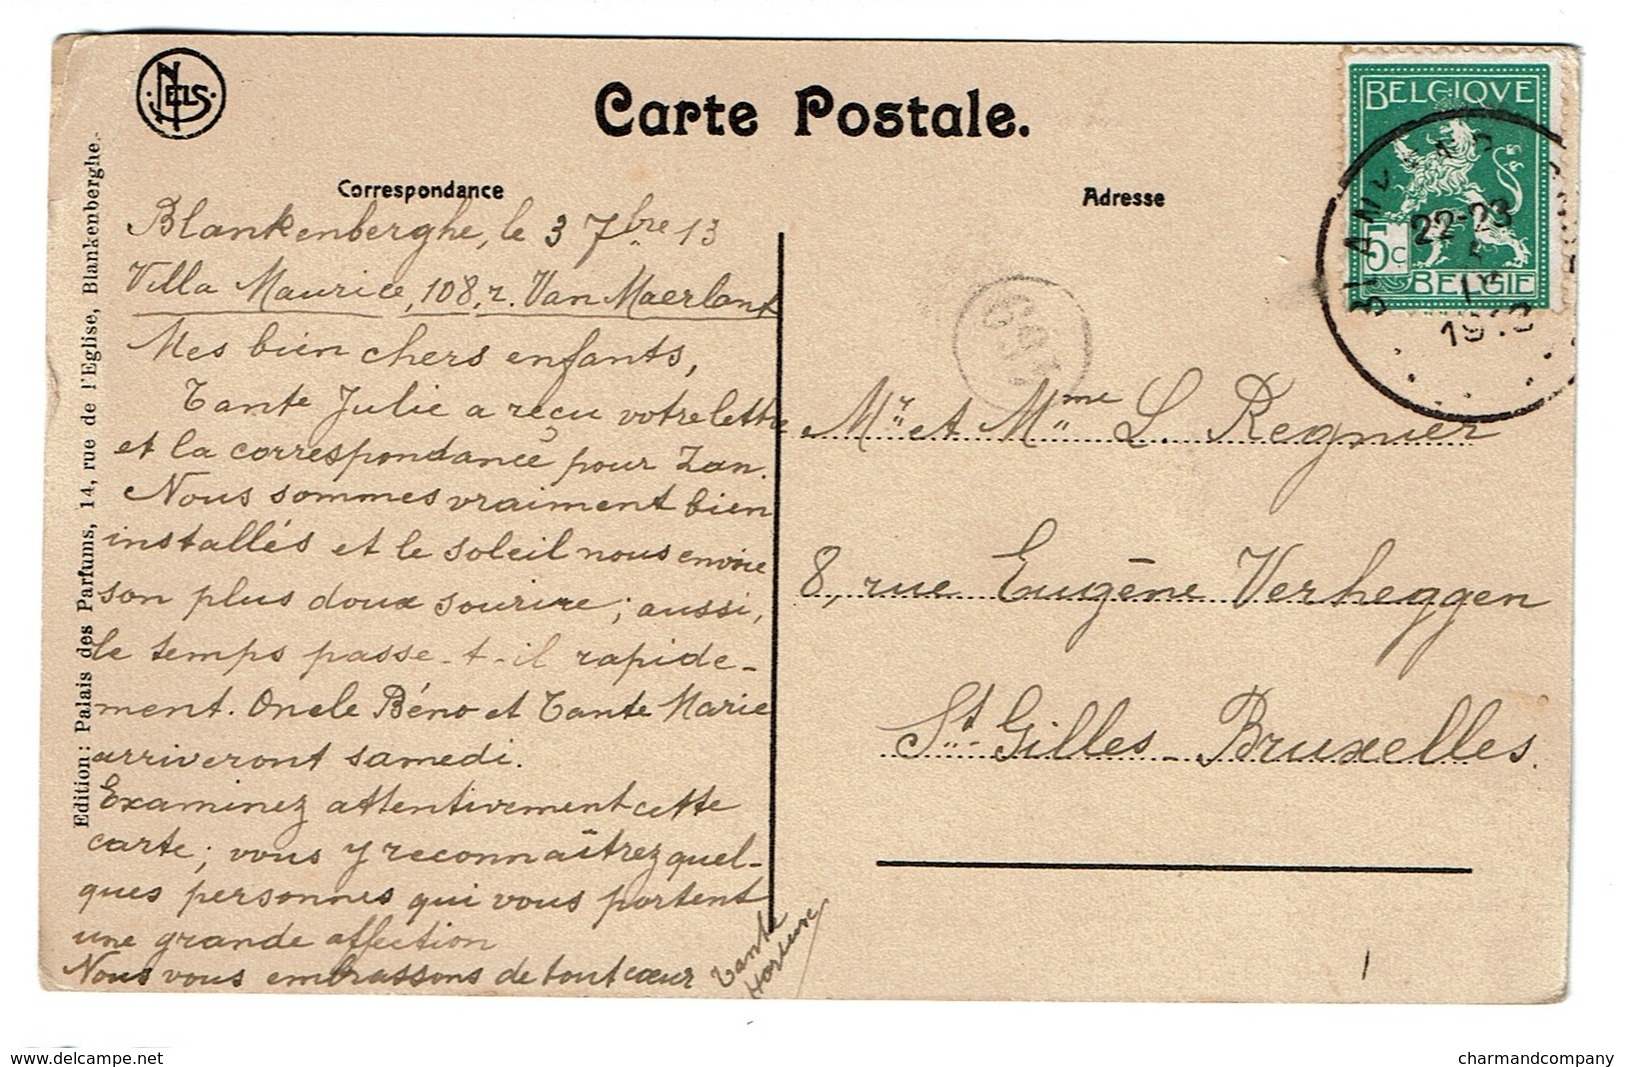 NELS
Carte Postale.
Correspondance
Adresse
Edition: Palais des Parfums, 14, rue de l'Eglise, Blankenberghe.
Blankenberghe, le 3 7bre 13
Villa Maurice, 108, r. Van Maerlant
Mes bien chers enfants,
Tante Julie a reçu votre lettre
et la correspondance pour Zan.
Nous sommes vraiment bien
installés et le soleil nous envoie
son plus doux sourire; aussi,
le temps passe-t-il rapide-
ment. Oncle Béno et Tante Marie
arriveront samedi.
Examinez attentivement cette
carte; vous y reconnaîtrez quel-
ques personnes qui vous portent
une grande affection
Nous vous embrassons de tout cœur
Tante
Hortense
BELGIQVE
5c
BELGIE
BLANKENB
22-23
19
Mr. et Mme L. Regnier
8, rue Eugène Verheggen
St. Gilles - Bruxelles.
1
www.delcampe.net
charmandcompany